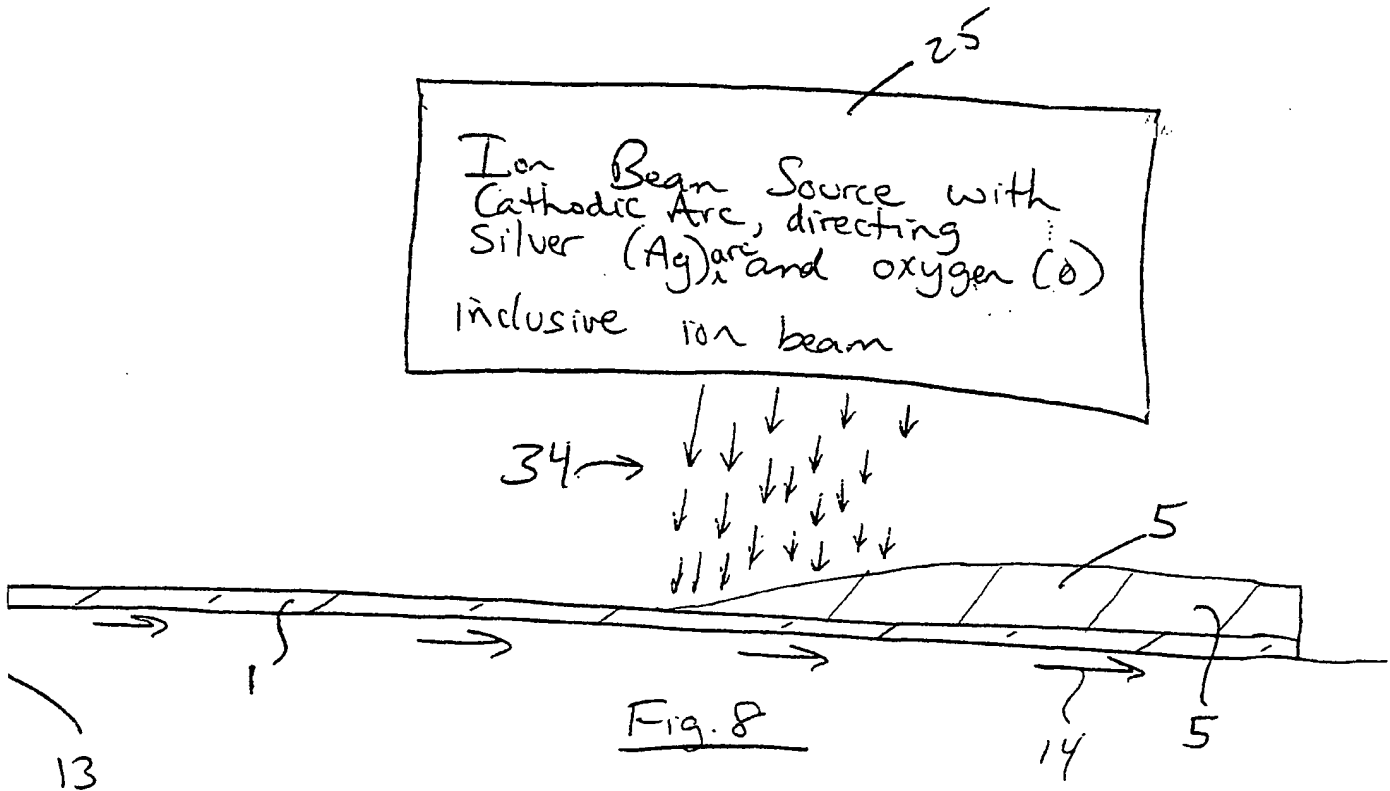 25
Ion Beam Source with
Cathodic Arc, directing
Silver (Ag)i arc and oxygen (O)
inclusive ion beam
34
5
1
5
14
13
Fig. 8